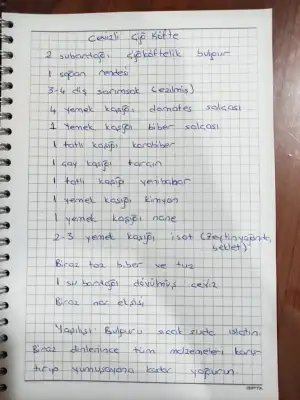 Cevizli Çiğ Köfte
2 subardağı çiğköftelik bulgur
1 soğan rendesi
3-4 diş sarımsak (ezilmiş)
4 yemek kaşığı domates salçası
1 yemek kaşığı biber salçası
1 tatlı kaşığı karabiber
1 çay kaşığı tarçın
1 tatlı kaşığı yenibahar
1 yemek kaşığı kimyon
1 yemek kaşığı nane
2-3 yemek kaşığı isot (zeytinyağında
beklet)
Biraz toz biber ve tuz
1 su bardağı dövülmüş ceviz
Biraz nar ekşisi
Yapılışı: Bulguru sıcak suda ıslatın.
Biraz dinlenince tüm malzemeleri karış-
tırıp yumuşayana kadar yoğurun.